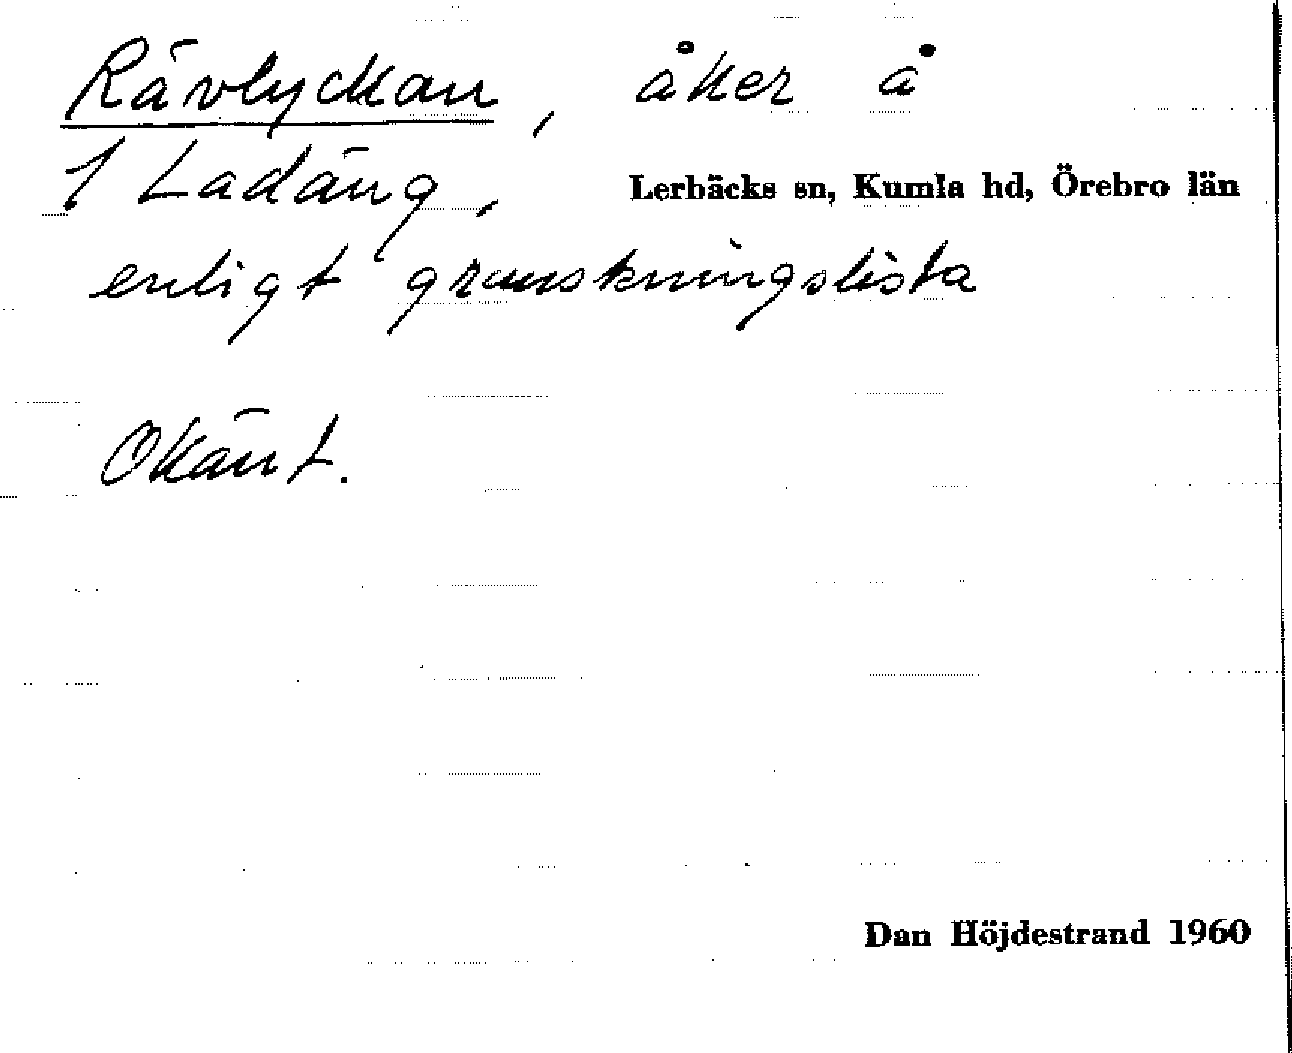 Rävlyckan, åker å
1 Ladäng,
Lerbäcks sn, Kumla hd, Örebro län
enligt granskningslista
Okänt.
Dan Höjdestrand 1960